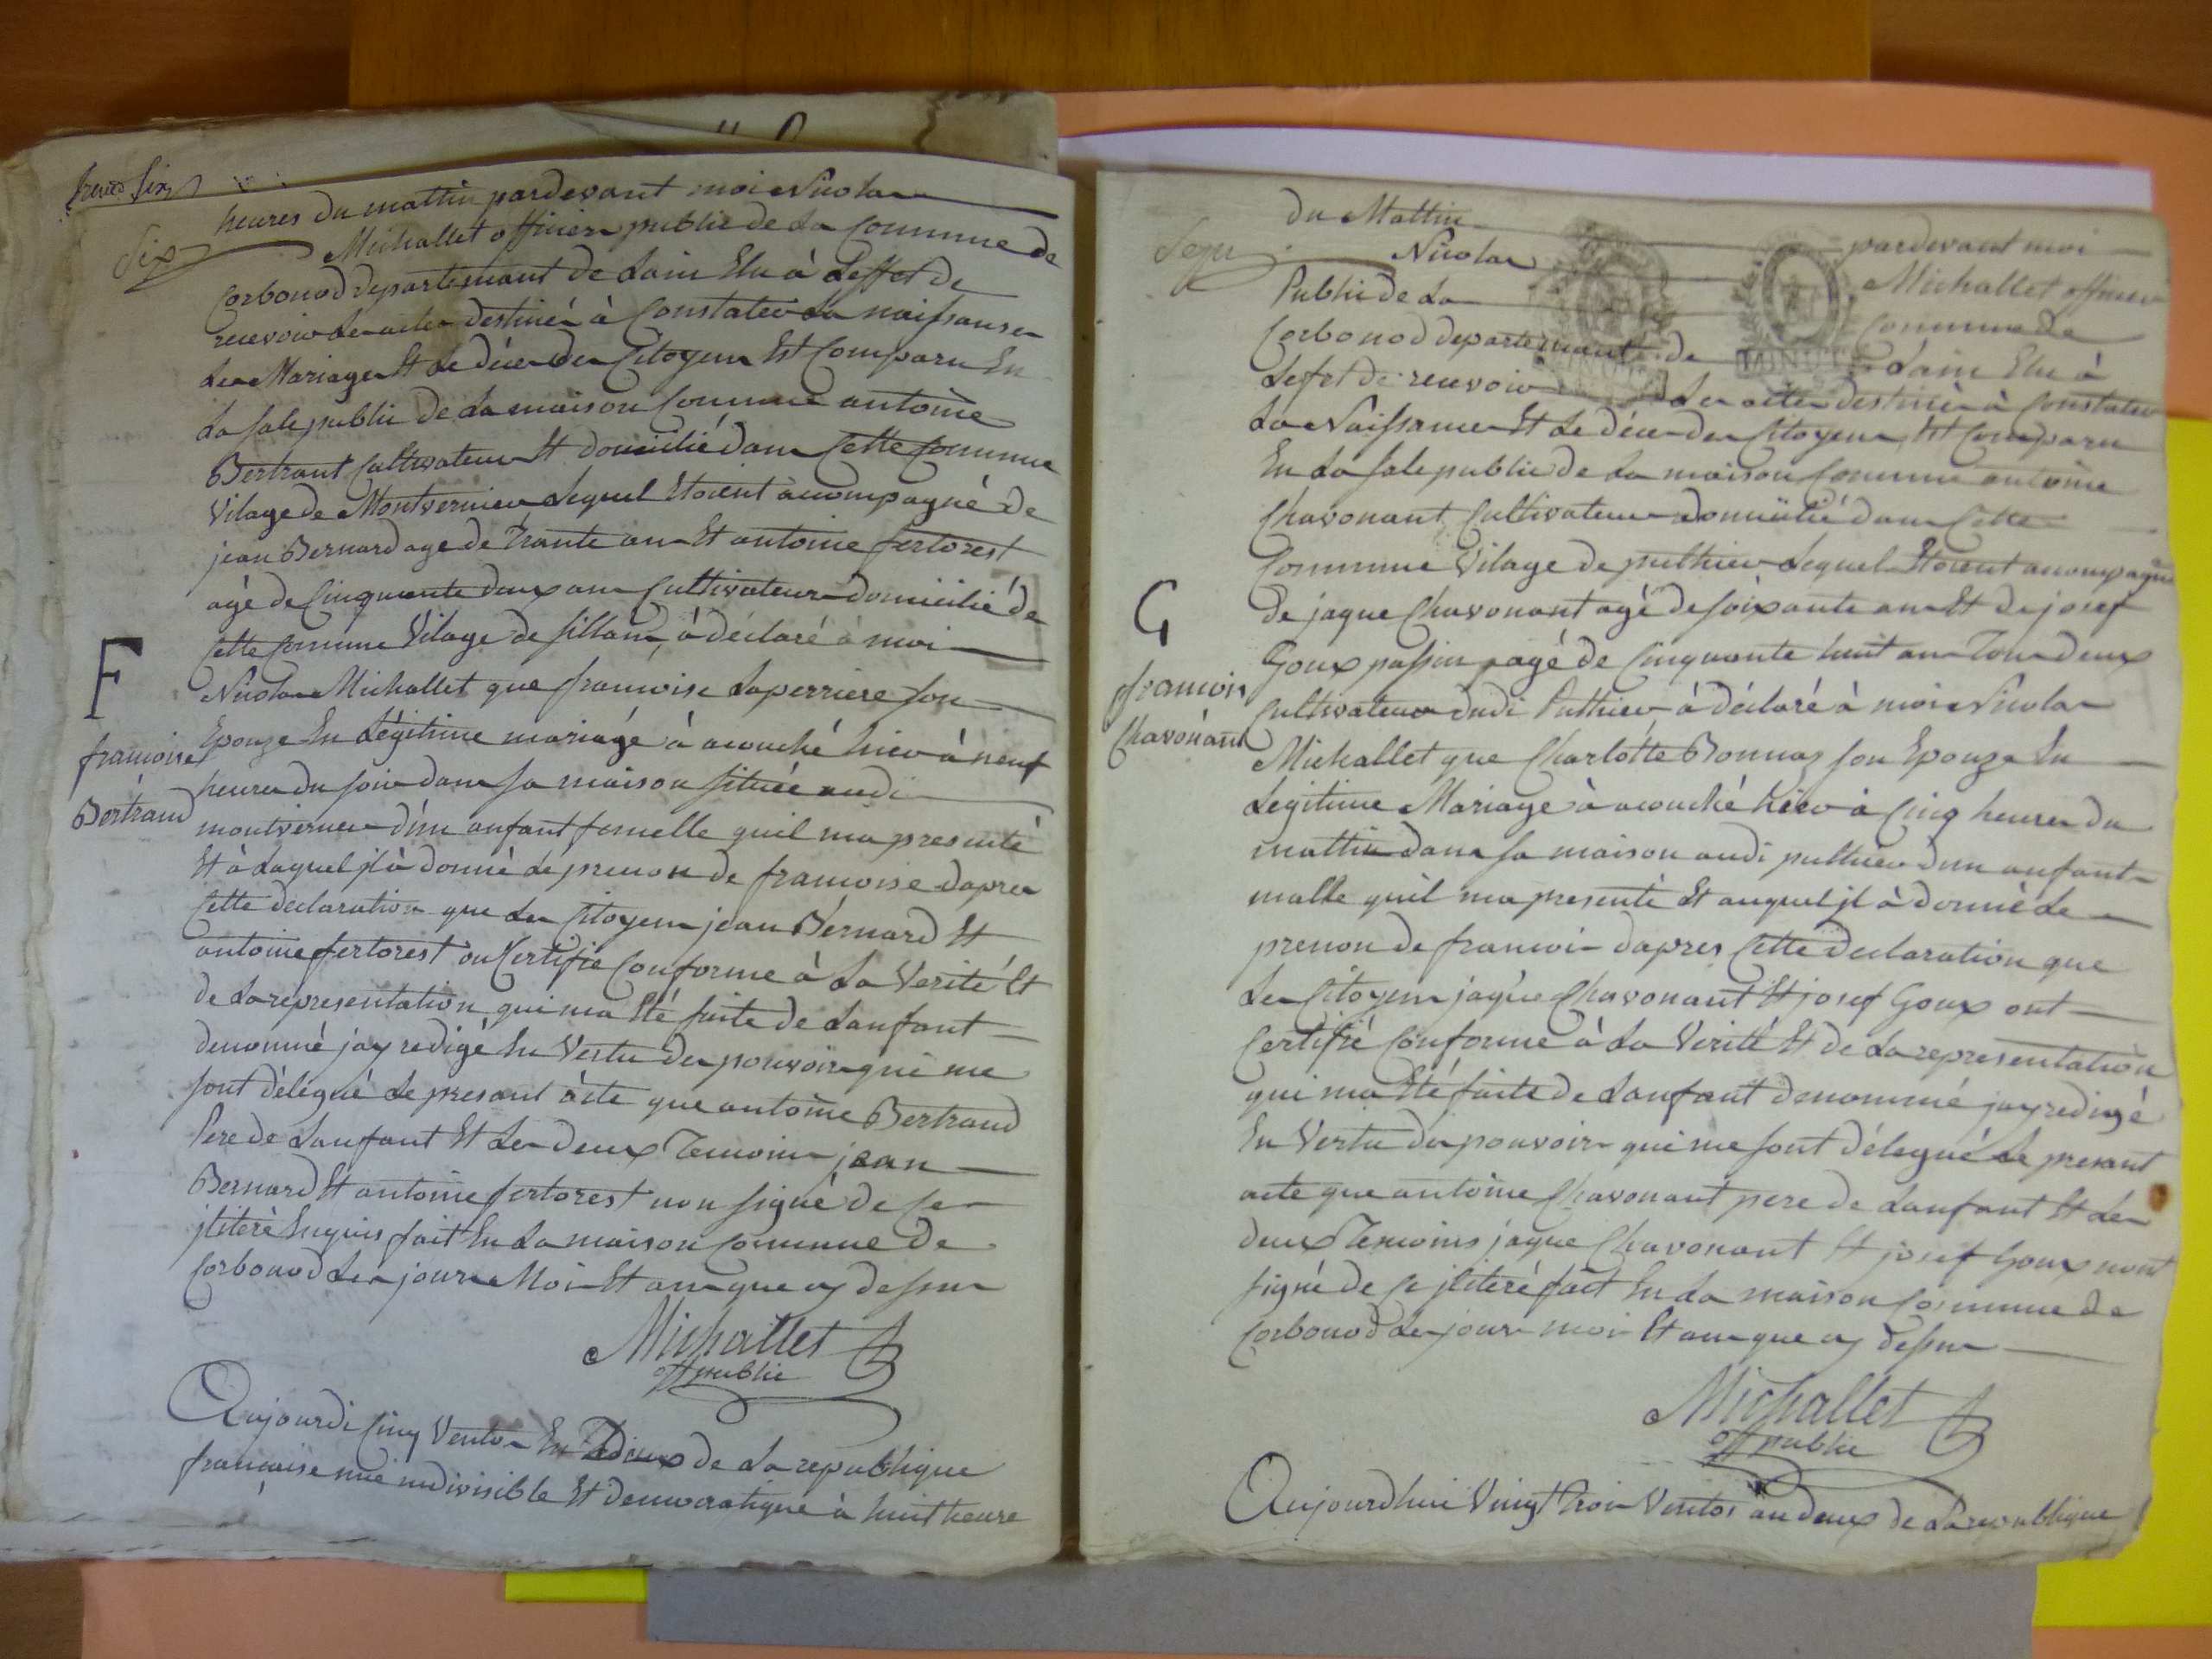 Six
heures du mattin pardevant moi Nicolas
Michallet officier public de La Commune de
Corbonod departemant de Lain Elu à Leffet de
recevoir les actes destinés à Constater La naissanse
Les Mariages Et Le déces des Citoyens Est Comparu En
La sale public de La maison Commune antoine
Bertrant Cultivateur Et domicilié dans Cette Commune
Vilage de Montvernier Lequel Etoient acompagné de
jean Bernard age de Trante ans Et antoine fertorest
agé de Cinquante deux ans Cultivateurs domicilié de
Cette Commune Vilage de sillans, à déclaré à moi
Nicolas Michallet que francoise Laperriere son
Epouze En Légitime mariagé à acouché hier à neuf
heures du soir dans sa maison située audi
montvernier d'un anfant femelle quil ma presenté
Et à Laquel jl à donné Le prenon de francoise daprès
Cette declaration que Les Citoyens jean Bernard Et
antoine fertorest on Certifié Conforme à La Verité Et
de La representation qui ma Eté faite de Lanfant
denommé jay redigé En Vertu des pouvoirs qui me
sont délégué Le presant acte que antoine Bertrand
Pere de Lanfant Et Les deux Temoins jean
Bernard Et antoine fertorest non signé de Ce
jliteré Enquis fait En La maison Commune de
Corbonod Les jours Mois Et ans que cy dessus
Michallet
off public
Aujourdi Cinq Ventos En deux de La republique
francaise une indivisible Et democratique à huit heure
F
francoise
Bertrand
du Mattin pardevant moi
Nicolas Michallet officier
Public de La Commune de
Corbonod departemant de Lain Elu à
Lefet de recevoir Les actes destinés à Constater
La Naissance Et Le déces des Citoyens Est Comparu
En La sale public de La maison Commune antoine
Chavonant Cultivateur domicilié dans Cette
Commune Vilage de puthier Lequel Etoient acompagné
de jaque Chavonant agé de soixante ans Et de josef
Goux passin agé de Cinquante huit ans Tous deux
Cultivateurs dudi Puthier à déclaré à moi Nicolas
Michallet que Charlotte Bonnaz son Epouze En
Legitime Mariage à acouché hier à Cinq heures du
mattin dans sa maison audi puthier dun anfant
malle quil ma presenté Et auquel jl à donné Le
prenon de francois dapres Cette declaration que
Les Citoyens jaque Chavonant Et josef Goux ont
Certifié Conforme à La Verité Et de La representation
qui ma Eté faite de Lanfant denommé jay redigé
En Vertu des pouvoirs qui me sont délegué Le presant
acte que antoine Chavonant pere de Lanfant Et Les
deux Temoins jaque Chavonant Et josef Goux nont
signé de Ce jliteré fait En La maison Commune de
Corbonod Les jours mois Et ans que cy dessus
Michallet
off public
Aujourdhui Vingt Trois Ventos an deux de La republique
G
francois
Chavonant